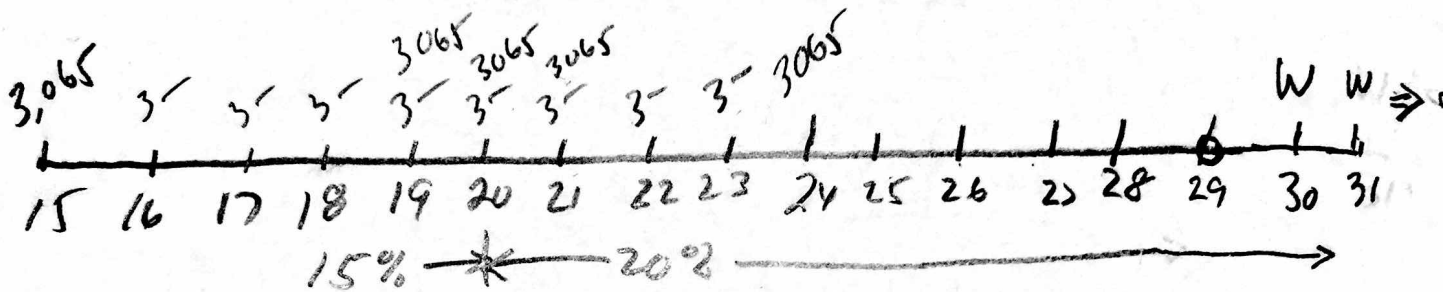 3065 3065 3065 3065
3,065 3- 3- 3- 3- 3- 3- 3- 3- W W ⇒
15 16 17 18 19 20 21 22 23 24 25 26 27 28 29 30 31
15% 20%